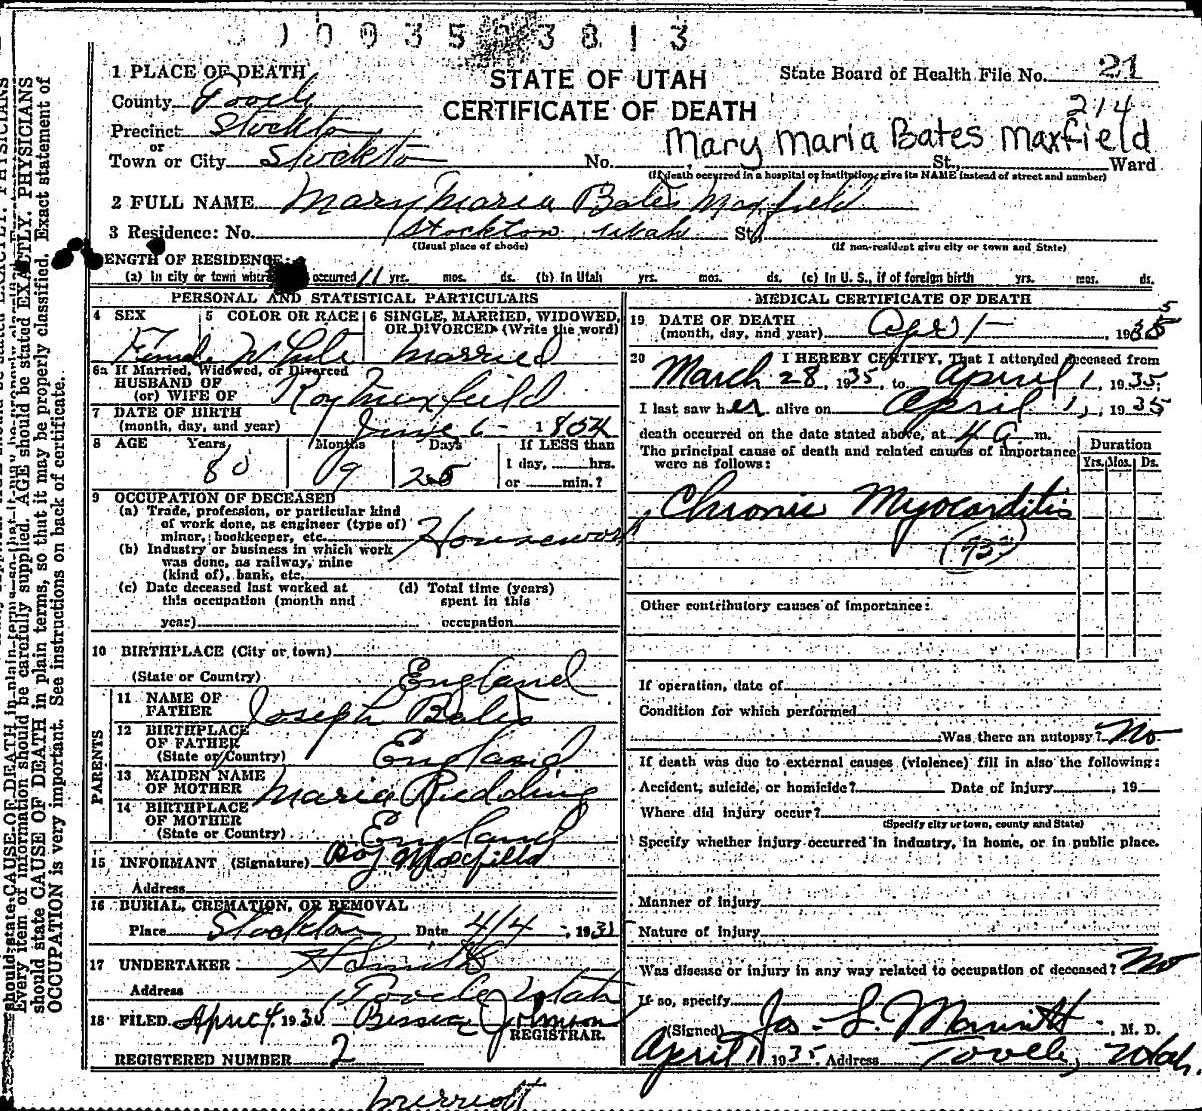 0 0 3 5 3 8 1 3
STATE OF UTAH
CERTIFICATE OF DEATH
State Board of Health File No. 21
214
Mary Maria Bates Maxfield
1 PLACE OF DEATH
County Tooele
Precinct Stockton
or
Town or City Stockton No. St., Ward
(If death occurred in a hospital or institution, give its NAME instead of street and number)
2 FULL NAME Mary Maria Bates Maxfield
3 Residence: No. Stockton, Utah St.
(Usual place of abode) (If non-resident give city or town and State)
LENGTH OF RESIDENCE:
(a) In city or town where occurred 11 yrs. mos. ds. (b) In Utah yrs. mos. ds. (c) In U. S., if of foreign birth yrs. mos. ds.
PERSONAL AND STATISTICAL PARTICULARS
4 SEX 5 COLOR OR RACE 6 SINGLE, MARRIED, WIDOWED,
OR DIVORCED (Write the word)
Female White married
6a If Married, Widowed, or Divorced
HUSBAND OF
(or) WIFE OF Roy Maxfield
7 DATE OF BIRTH
(month, day, and year) June 6 - 1854
8 AGE Years Months Days If LESS than
80 9 25 1 day, hrs.
or min.?
9 OCCUPATION OF DECEASED
(a) Trade, profession, or particular kind
of work done, as engineer (type of)
miner, bookkeeper, etc. Housework
(b) Industry or business in which work
was done, as railway, mine
(kind of), bank, etc.
(c) Date deceased last worked at (d) Total time (years)
this occupation (month and spent in this
year) occupation
10 BIRTHPLACE (City or town)
(State or Country) England
PARENTS
11 NAME OF
FATHER Joseph Bates
12 BIRTHPLACE
OF FATHER
(State or Country) England
13 MAIDEN NAME
OF MOTHER Maria Rudding
14 BIRTHPLACE
OF MOTHER
(State or Country) England
15 INFORMANT (Signature) Roy Maxfield
Address
16 BURIAL, CREMATION, OR REMOVAL
Place Stockton Date 4/4, 1935
17 UNDERTAKER Smith
Address Tooele Utah
18 FILED April 4, 1935 Bessie Johnson
REGISTRAR.
REGISTERED NUMBER 2
MEDICAL CERTIFICATE OF DEATH
19 DATE OF DEATH
(month, day, and year) Apr 1 - 1935
5
20 I HEREBY CERTIFY, That I attended deceased from
March 28, 1935, to April 1, 1935;
I last saw her alive on April 1, 1935
death occurred on the date stated above, at 4 a. m.
The principal cause of death and related causes of importance
were as follows:
Duration
Yrs. Mos. Ds.
Chronic Myocarditis
Other contributory causes of importance:
If operation, date of
Condition for which performed
Was there an autopsy? No
If death was due to external causes (violence) fill in also the following:
Accident, suicide, or homicide? Date of injury , 19
Where did injury occur?
(Specify city or town, county and State)
Specify whether injury occurred in industry, in home, or in public place.
Manner of injury
Nature of injury
Was disease or injury in any way related to occupation of deceased? No
If so, specify
(Signed) Jos. L. , M. D.
April 1, 1935 Address Tooele, Utah.
merriott
Every item of information should be carefully supplied. AGE should be stated EXACTLY. PHYSICIANS
should state CAUSE OF DEATH in plain terms, so that it may be properly classified. Exact statement of
OCCUPATION is very important. See instructions on back of certificate.